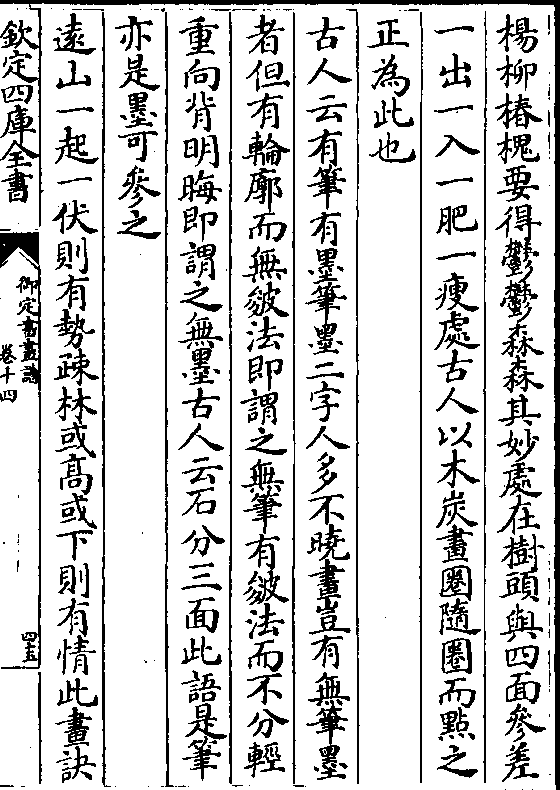 楊柳椿槐要得鬱鬱森森其妙處在樹頭與四面參差
一出一入一肥一瘦處古人以木炭畫圈隨圈而點之
正為此也
古人云有筆有墨筆墨二字人多不曉畫豈有無筆墨
者但有輪廓而無皴法即謂之無筆有皴法而不分輕
重向背明晦即謂之無墨古人云石分三面此語是筆
亦是墨可參之
遠山一起一伏則有勢疎林或高或下則有情此畫訣
欽定四庫全書
御定書畫譜
卷十四
四五